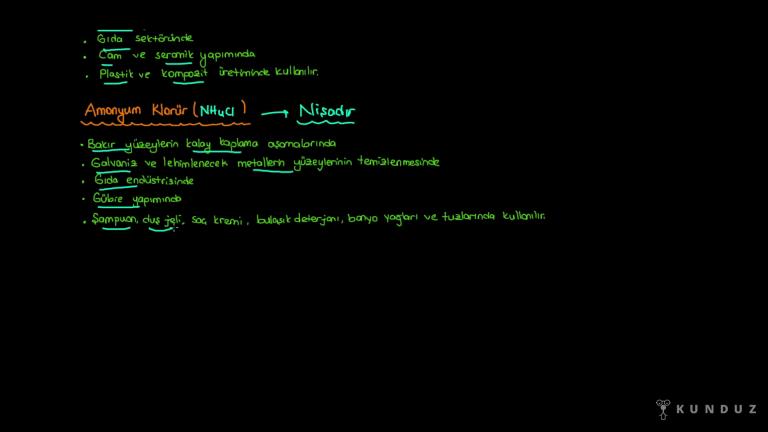 • Gıda sektöründe
• Cam ve seramik yapımında
• Plastik ve kompozit üretiminde kullanılır.
Amonyum Klorür (NH4Cl) → Nişadır
• Bakır yüzeylerin kalay kaplama aşamalarında
• Galvaniz ve lehimlenecek metallerin yüzeylerinin temizlenmesinde
• Gıda endüstrisinde
• Gübre yapımında
• Şampuan, duş jeli, saç kremi, bulaşık deterjanı, banyo yağları ve tuzlarında kullanılır.
KUNDUZ